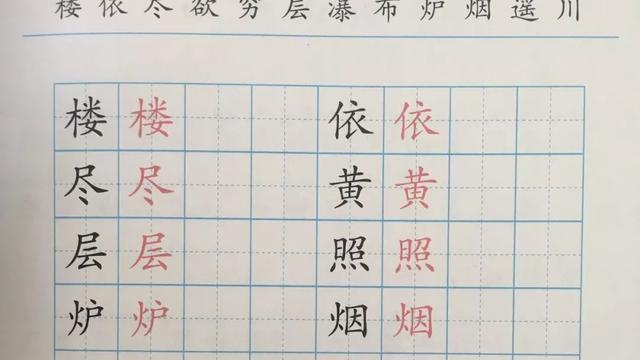 楼依尽欲穷层瀑布炉烟遥川
楼楼 依依
尽尽 黄黄
层层 照照
炉炉 烟烟